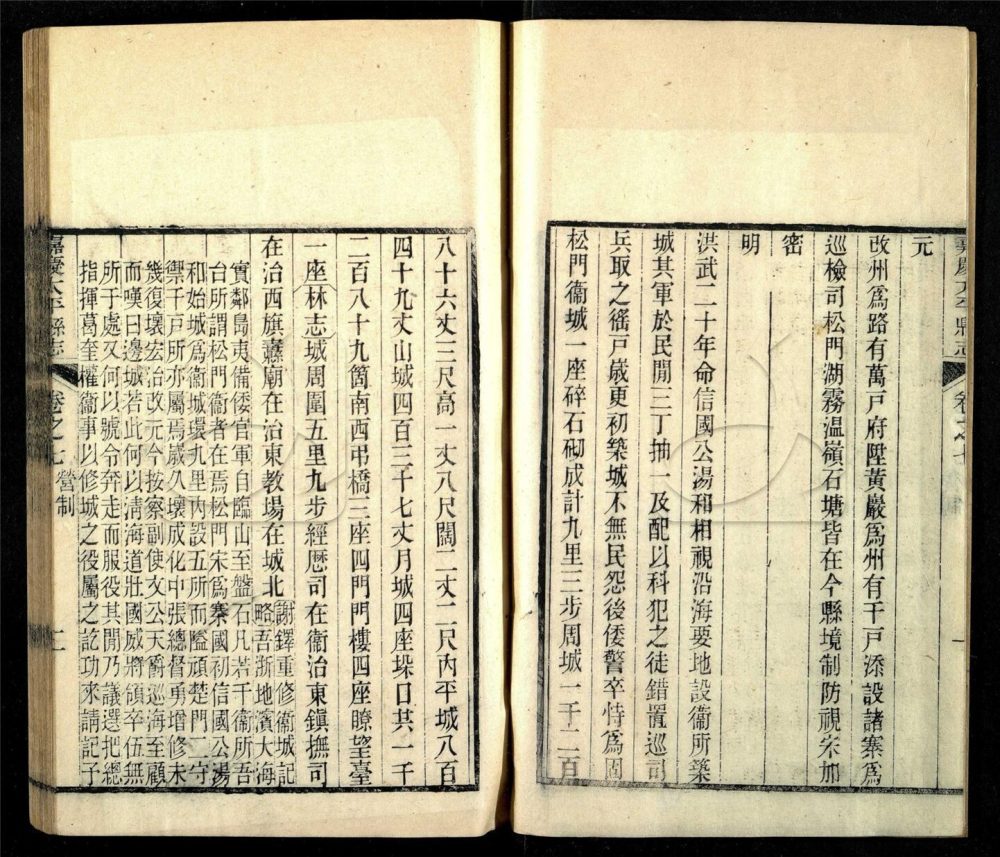 嘉慶太平縣志 卷之七
元
改州爲路有萬戸府陞黃巖爲州有千戸添設諸寨爲
巡檢司松門湖霧温嶺石塘皆在今縣境制防視宋加
密
明
洪武二十年命信國公湯和相視沿海要地設衞所築
城其軍於民閒三丁抽一及配以科犯之徒錯置巡司
兵取之徭戸嵗更初築城不無民怨後倭警卒恃爲固
松門衞城一座碎石砌成計九里三步周城一千二百
八十六丈三尺高一丈八尺闊二丈二尺內平城八百
四十九丈山城四百三十七丈月城四座垜口共一千
二百八十九箇南西弔橋三座四門門樓四座瞭望臺
一座林志城周圍五里九步經厯司在衞治東鎮撫司
在治西旗纛廟在治東教場在城北謝鐸重修衞城記
略吾浙地濱大海
實鄰島夷備倭官軍自臨山至盤石凡若干衞所吾
台所謂松門衞者在焉松門宋爲寨國初信國公湯
和始城爲衞城環九里內設五所而隘頑楚門二守
禦千戸所亦屬焉嵗久壞成化中張總督勇增修未
幾復壞宏治改元今按察副使文公天爵巡海至顧
而嘆曰邊城若此何以淸海道壯國威將領卒伍無
所于處又何以號令奔走而服役其閒乃議選把總
指揮葛奎權衞事以修城之役屬之訖功來請記子
嘉慶太平縣志 卷之七 營制 二